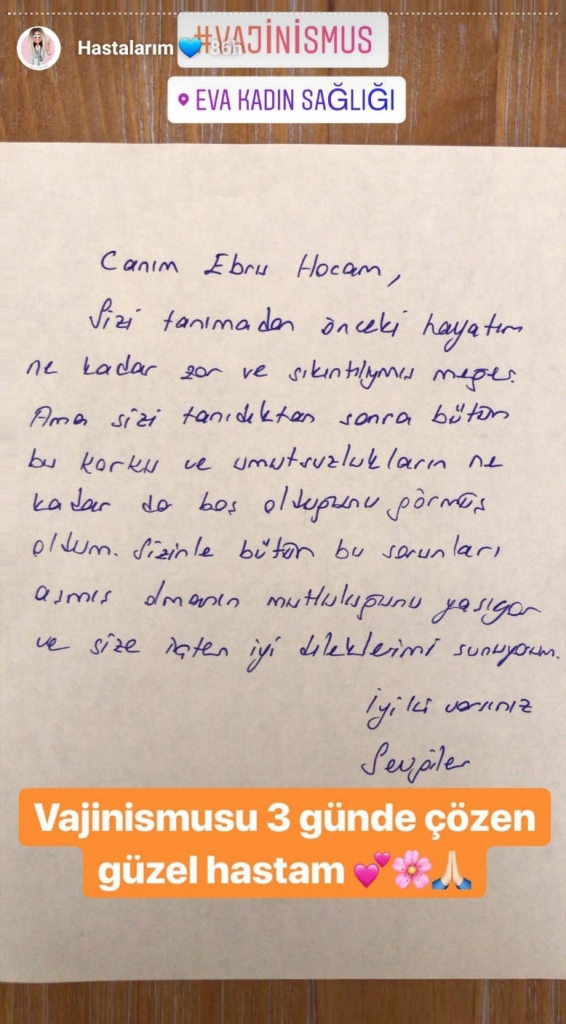 #VAJİNİSMUS
Hastalarım 💙 86h
EVA KADIN SAĞLIĞI
Canım Ebru Hocam,
Sizi tanımadan önceki hayatım
ne kadar zor ve sıkıntılıymış meğer.
Ama sizi tanıdıktan sonra bütün
bu korku ve umutsuzlukların ne
kadar da boş olduğunu görmüş
oldum. Sizinle bütün bu sorunları
aşmış olmanın mutluluğunu yaşıyor
ve size içten iyi dileklerimi sunuyorum.
İyi ki varsınız
Sevgiler
Vajinismusu 3 günde çözen
güzel hastam 💕🌸🙏🏻